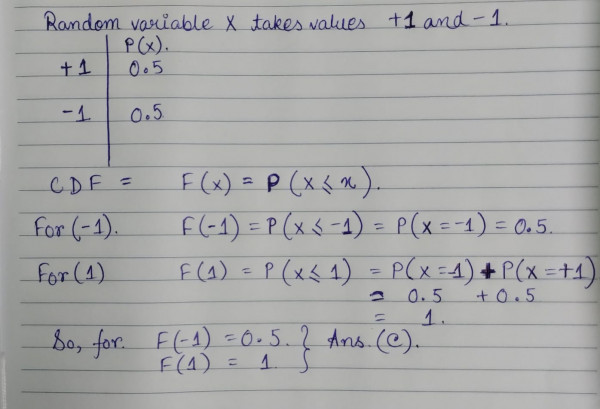 Random variable X takes values +1 and -1.
P(x).
+1 0.5
-1 0.5
CDF = F(x) = P(X ≤ x).
For (-1). F(-1) = P(X ≤ -1) = P(X = -1) = 0.5.
For (1) F(1) = P(X ≤ 1) = P(X = -1) + P(X = +1)
= 0.5 + 0.5
= 1.
So, for. F(-1) = 0.5. } Ans. (C).
F(1) = 1.